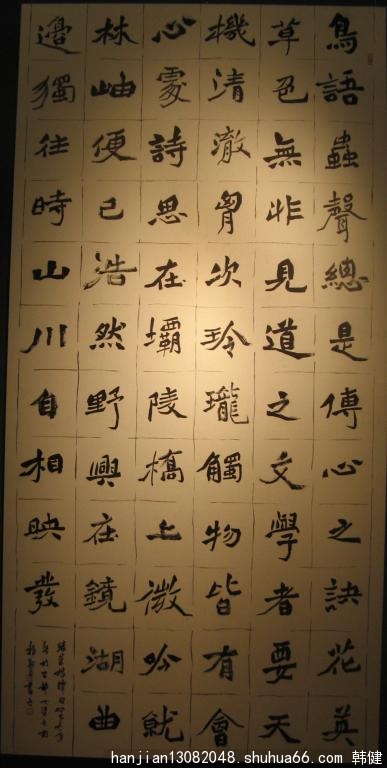 鳥語蟲聲總是傳心之訣花英
草色無非見道之文學者要天
機清澈胷次玲瓏觸物皆有會
心處詩思在壩陵橋上微吟就
林岫便已浩然野興在鏡湖曲
邊獨往時山川自相映發
hanjian13082048.shuhua66.com 韩健